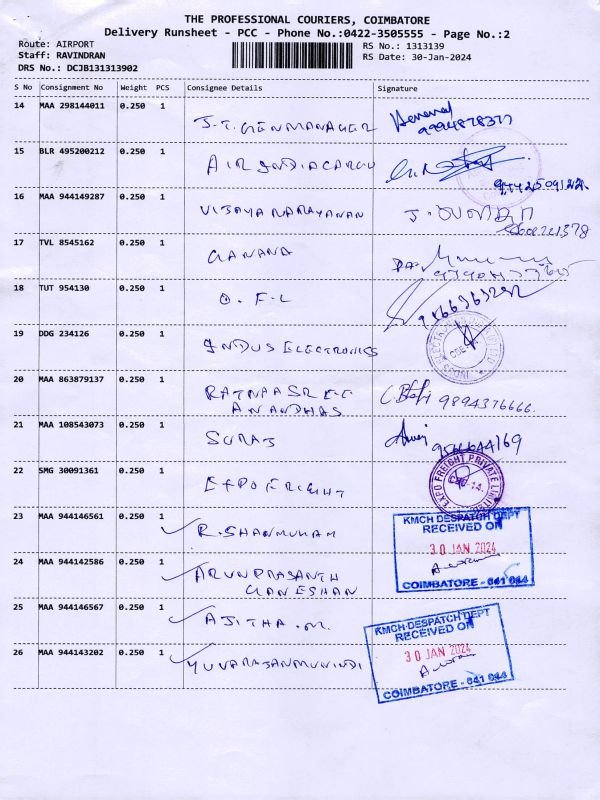 THE PROFESSIONAL COURIERS, COIMBATORE
Delivery Runsheet - PCC - Phone No.:0422-3505555 - Page No.:2
Route: AIRPORT RS No.: 1313139
Staff: RAVINDRAN RS Date: 30-Jan-2024
DRS No.: DCJB131313902
S No Consignment No Weight PCS Consignee Details Signature
14 MAA 298144011 0.250 1
J.T. GEN MANAGER 9994878377
15 BLR 495200212 0.250 1
AIR INDIA CARGO
9442509122
16 MAA 944149287 0.250 1
VIJAYA NARAYANAN
17 TVL 8545162 0.250 1
GANANA
18 TUT 954130 0.250 1
O.F.L
19 DDG 234126 0.250 1
INDUS ELECTRONICS
20 MAA 863879137 0.250 1
RATNAASREE 9894376666.
ANANDHAS
21 MAA 108543073 0.250 1
SURAJ 9566644169
22 SMG 30091361 0.250 1
EXPO FREIGHT
EXPO FREIGHT PRIVATE LIMITED
23 MAA 944146561 0.250 1
R. SHANMUKAM
KMCH DESPATCH DEPT
RECEIVED ON
30 JAN 2024
COIMBATORE - 641 014
24 MAA 944142586 0.250 1
ARUNPRASANTH
GANESHAN
25 MAA 944146567 0.250 1
AJITHA.M.
26 MAA 944143202 0.250 1
YUVARAJANMUNINDI
KMCH DESPATCH DEPT
RECEIVED ON
30 JAN 2024
COIMBATORE - 641 014